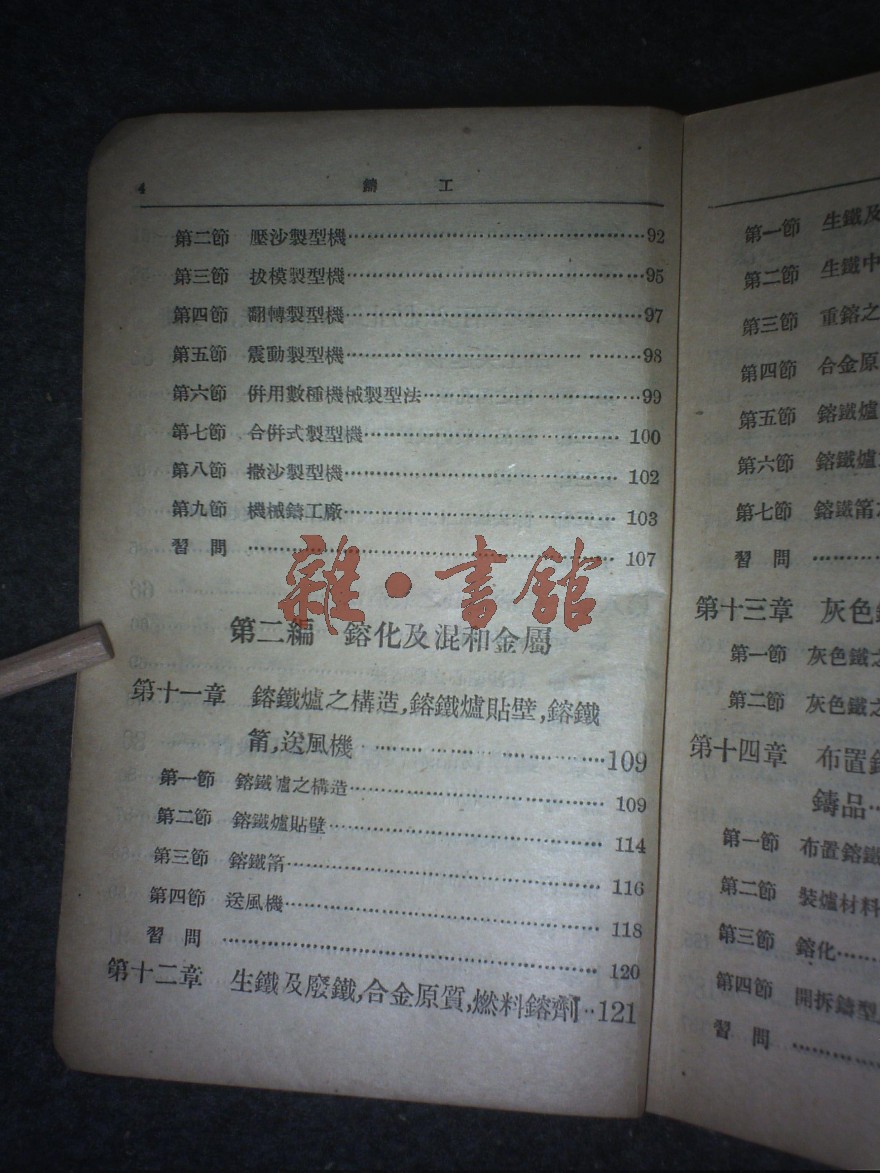 4 鑄 工
第二節 壓沙製型機……………………………………92
第三節 拔模製型機……………………………………95
第四節 翻轉製型機……………………………………97
第五節 震動製型機……………………………………98
第六節 併用數種機械製型法…………………………99
第七節 合併式製型機…………………………………100
第八節 撒沙製型機……………………………………102
第九節 機械鑄工廠……………………………………103
習 問 …………………………………………………107
雜·書館
第二編 鎔化及混和金屬
第十一章 鎔鐵爐之構造,鎔鐵爐貼壁,鎔鐵
筩,送風機 ……………………………109
第一節 鎔鐵爐之構造…………………………………109
第二節 鎔鐵爐貼壁……………………………………114
第三節 鎔鐵筩…………………………………………116
第四節 送風機…………………………………………118
習 問 …………………………………………………120
第十二章 生鐵及廢鐵,合金原質,燃料鎔劑··121
第一節 生鐵及
第二節 生鐵中
第三節 重鎔之
第四節 合金原
第五節 鎔鐵爐
第六節 鎔鐵爐
第七節 鎔鐵筩
習 問 …………
第十三章 灰色
第一節 灰色鐵之
第二節 灰色鐵之
第十四章 布置
鑄品…
第一節 布置鎔鐵
第二節 裝爐材料
第三節 鎔化……
第四節 開拆鑄型
習 問 …………